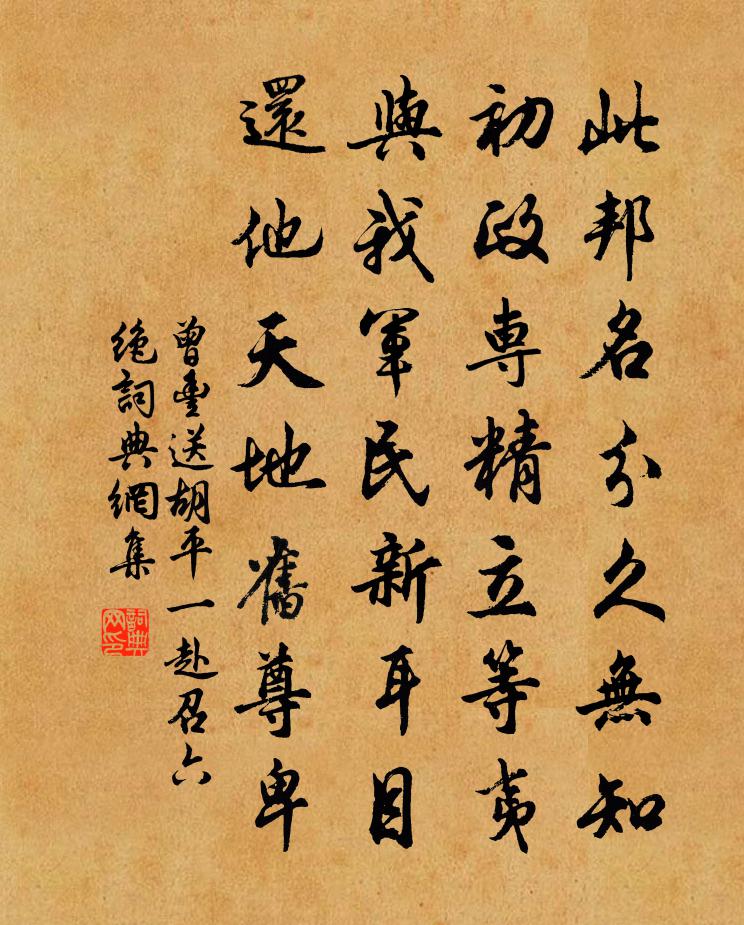 此邦名分久無知
初政専精立等夷
與我軍民新耳目
還他天地舊尊卑
曾豊送胡平一赴召六
絶詞典網集
詞典网印